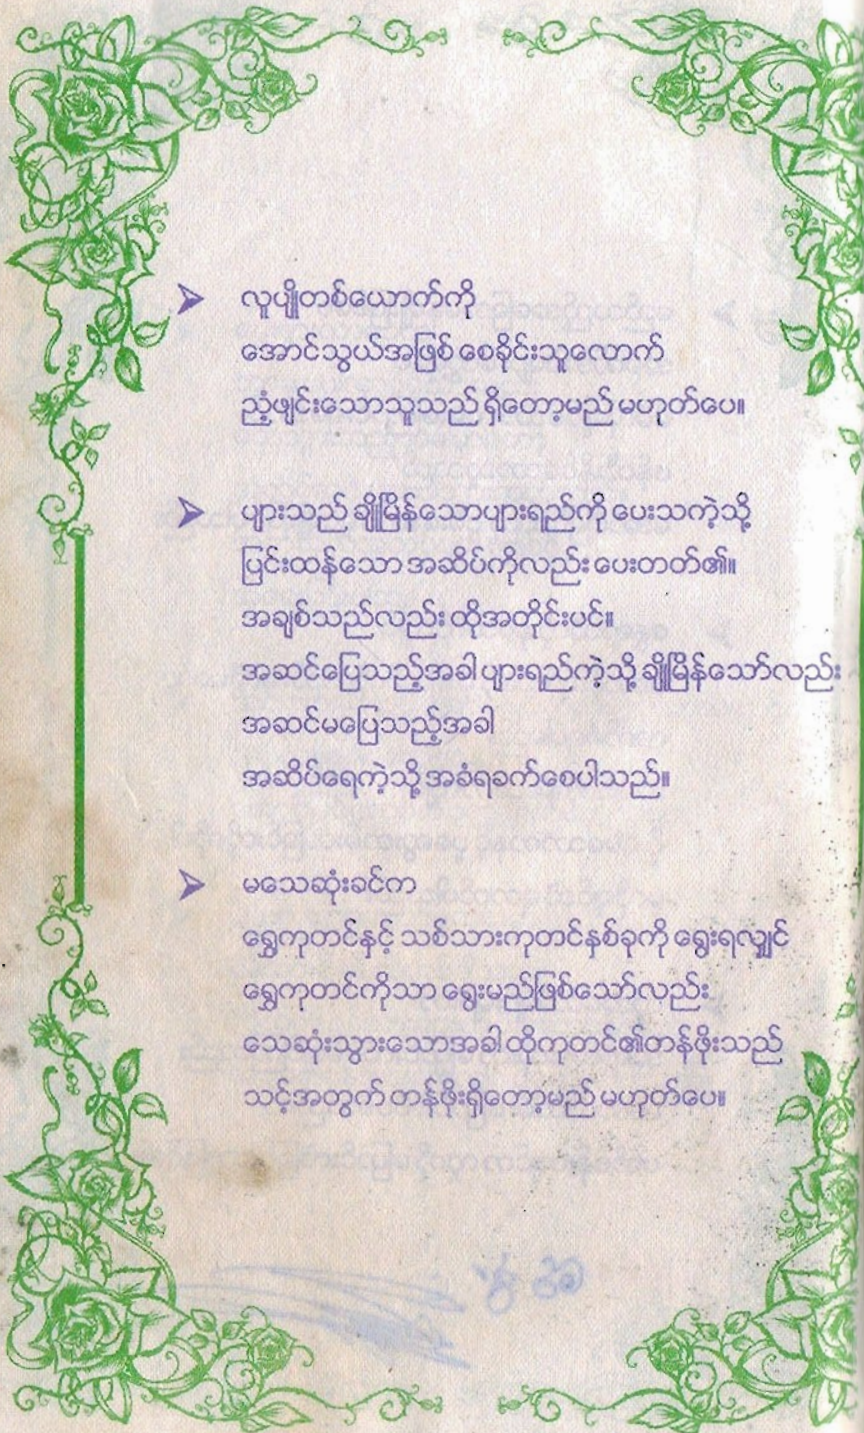 ➤ လူပျိုတစ်ယောက်ကို
အောင်သွယ်အဖြစ် စေခိုင်းသူလောက်
ညံ့ဖျင်းသောသူသည် ရှိတော့မည် မဟုတ်ပေ။
➤ ပျားသည် ချိုမြိန်သောပျားရည်ကို ပေးသကဲ့သို့
ပြင်းထန်သော အဆိပ်ကိုလည်း ပေးတတ်၏။
အချစ်သည်လည်း ထိုအတိုင်းပင်။
အဆင်ပြေသည့်အခါ ပျားရည်ကဲ့သို့ ချိုမြိန်သော်လည်း
အဆင်မပြေသည့်အခါ
အဆိပ်ရေကဲ့သို့ အခံရခက်စေပါသည်။
➤ မသေဆုံးခင်က
ရွှေကုတင်နှင့် သစ်သားကုတင်နှစ်ခုကို ရွေးရလျှင်
ရွှေကုတင်ကိုသာ ရွေးမည်ဖြစ်သော်လည်း
သေဆုံးသွားသောအခါ ထိုကုတင်၏တန်ဖိုးသည်
သင့်အတွက် တန်ဖိုးရှိတော့မည် မဟုတ်ပေ။